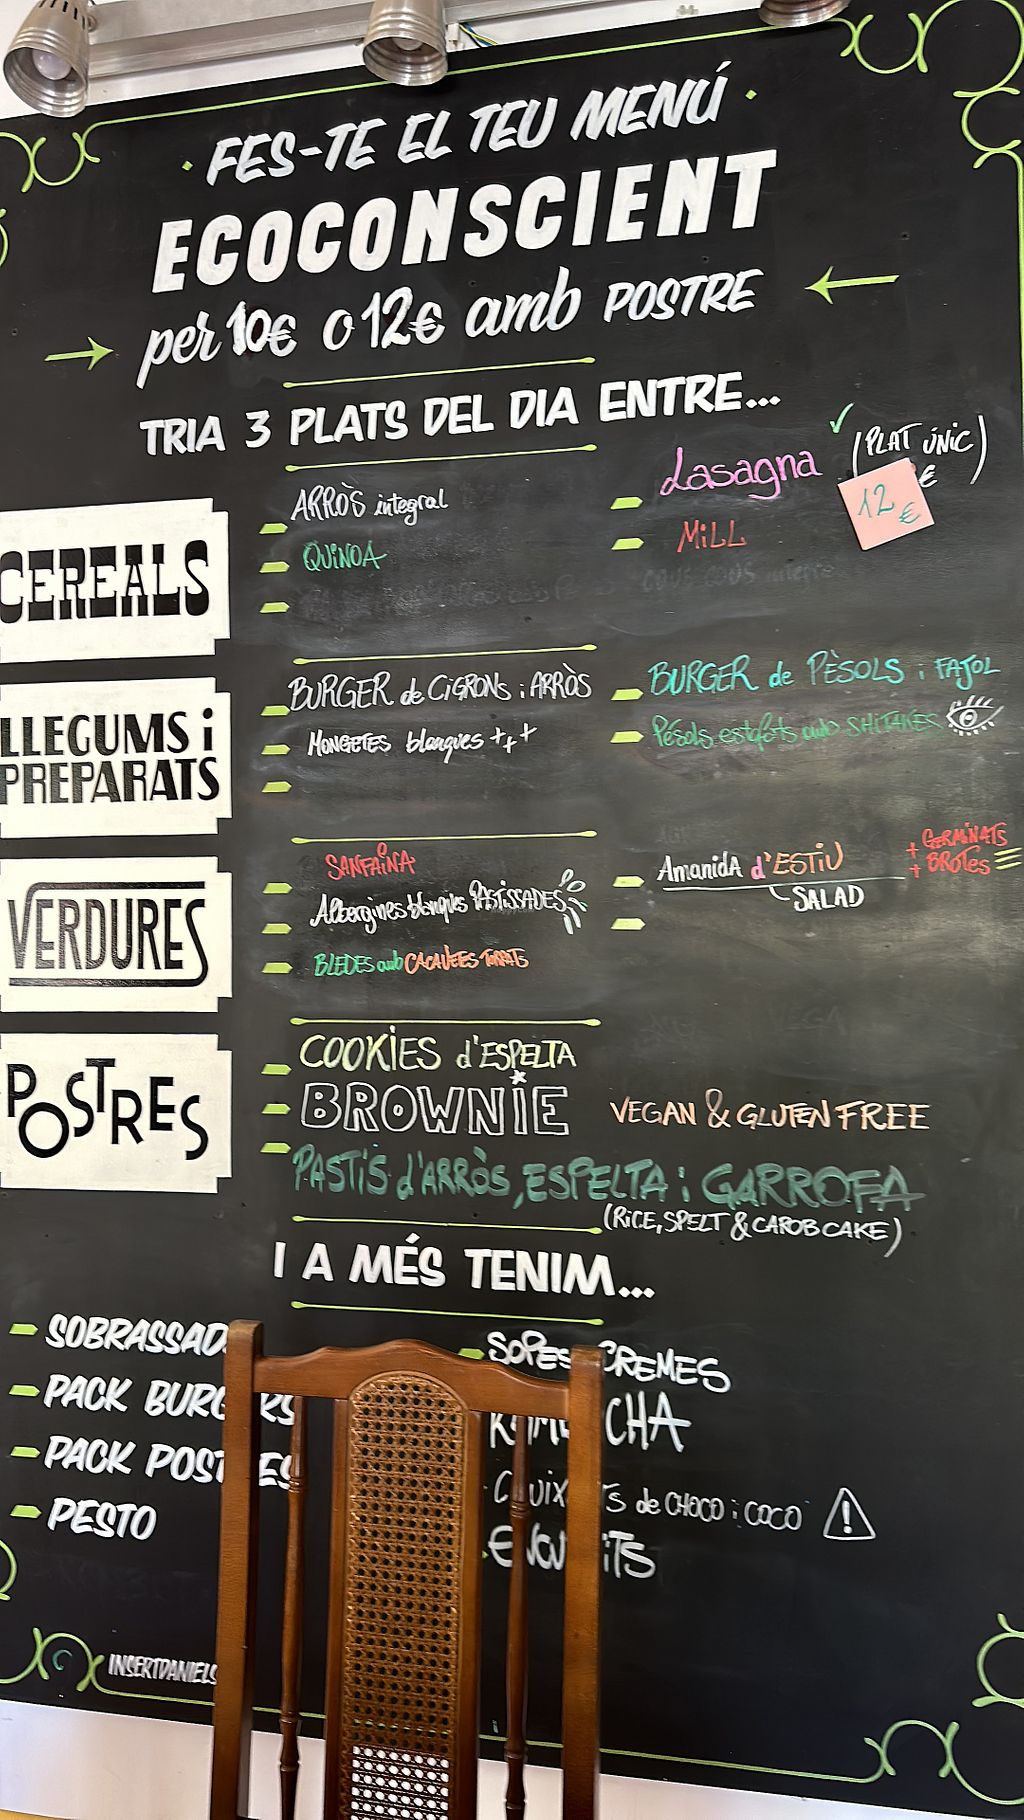 FES-TE EL TEU MENÚ
ECOCONSCIENT
per 10€ o 12€ amb POSTRE
TRIA 3 PLATS DEL DIA ENTRE...
CEREALS
ARRÒS integral
QUINOA
Lasagna (PLAT ÚNIC)
12 €
€
MILL
LLEGUMS i
PREPARATS
BURGER de CIGRONS i ARRÒS
MONGETES blanques +++
BURGER de PÈSOLS i FAJOL
Pésols estofats amb SHITAKES
VERDURES
SANFAINA
Albergínies blanques PASTISSADES
BLEDES amb CACAUEES TORRATS
Amanida d'ESTIU
SALAD
+ GERMINATS
+ BROTES
POSTRES
COOKIES d'ESPELTA
BROWNIE VEGAN & GLUTEN FREE
PASTÍS d'ARRÒS, ESPELTA i GARROFA
(RICE, SPELT & CAROB CAKE)
I A MÉS TENIM...
SOBRASSAD
PACK BURGERS
PACK POSTRES
PESTO
SOPES CREMES
CHA
de CHOCO i COCO
INSERTDANIELS